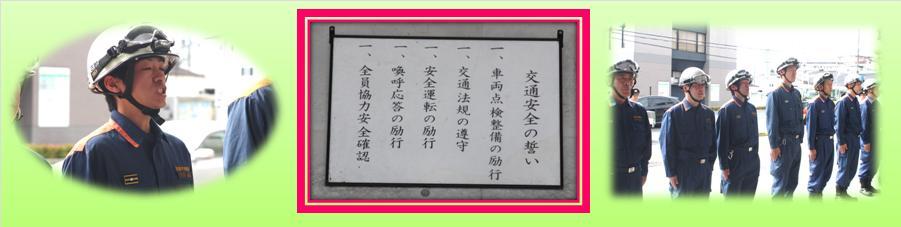 交通安全の誓い
一、車両点検整備の励行
一、交通法規の遵守
一、安全運転の励行
一、喚呼応答の励行
一、全員協力安全確認